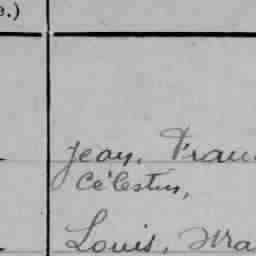 e.)
Jean, Fran
Célestin,
Louis, Ma